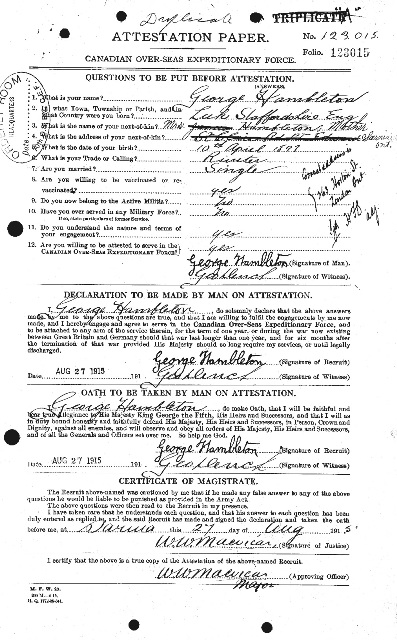 Duplicate
TRIPLICATE
ATTESTATION PAPER.
No. 123015.
Folio. 123015
CANADIAN OVER-SEAS EXPEDITIONARY FORCE.
QUESTIONS TO BE PUT BEFORE ATTESTATION.
(ANSWERS)
1. What is your name? George Hambleton
2. In what Town, Township or Parish, and in what Country were you born? Leek Staffordshire Eng.
3. What is the name of your next-of-kin? Mrs Hambleton Mother
4. What is the address of your next-of-kin?
5. What is the date of your birth? 10th April 1897
6. What is your Trade or Calling?
7. Are you married? Single
8. Are you willing to be vaccinated or re-vaccinated? yes
9. Do you now belong to the Active Militia?
10. Have you ever served in any Military Force? No
If so, state particulars of former Service.
11. Do you understand the nature and terms of your engagement? Yes
12. Are you willing to be attested to serve in the CANADIAN OVER-SEAS EXPEDITIONARY FORCE? yes
George Hambleton (Signature of Man).
(Signature of Witness).
DECLARATION TO BE MADE BY MAN ON ATTESTATION.
I, George Hambleton, do solemnly declare that the above answers
made by me to the above questions are true, and that I am willing to fulfil the engagements by me now
made, and I hereby engage and agree to serve in the Canadian Over-Seas Expeditionary Force, and
to be attached to any arm of the service therein, for the term of one year, or during the war now existing
between Great Britain and Germany should that war last longer than one year, and for six months after
the termination of that war provided His Majesty should so long require my services, or until legally
discharged.
George Hambleton (Signature of Recruit)
Date AUG 27 1915 191 (Signature of Witness)
OATH TO BE TAKEN BY MAN ON ATTESTATION.
I, George Hambleton, do make Oath, that I will be faithful and
bear true Allegiance to His Majesty King George the Fifth, His Heirs and Successors, and that I will as
in duty bound honestly and faithfully defend His Majesty, His Heirs and Successors, in Person, Crown and
Dignity, against all enemies, and will observe and obey all orders of His Majesty, His Heirs and Successors,
and of all the Generals and Officers set over me. So help me God.
George Hambleton (Signature of Recruit)
Date AUG 27 1915 191 (Signature of Witness)
CERTIFICATE OF MAGISTRATE.
The Recruit above-named was cautioned by me that if he made any false answer to any of the above
questions he would be liable to be punished as provided in the Army Act.
The above questions were then read to the Recruit in my presence.
I have taken care that he understands each question, and that his answer to each question has been
duly entered as replied to, and the said Recruit has made and signed the declaration and taken the oath
before me, at Sarnia this 27 day of Aug 1915
(Signature of Justice)
I certify that the above is a true copy of the Attestation of the above-named Recruit.
(Approving Officer)
Major